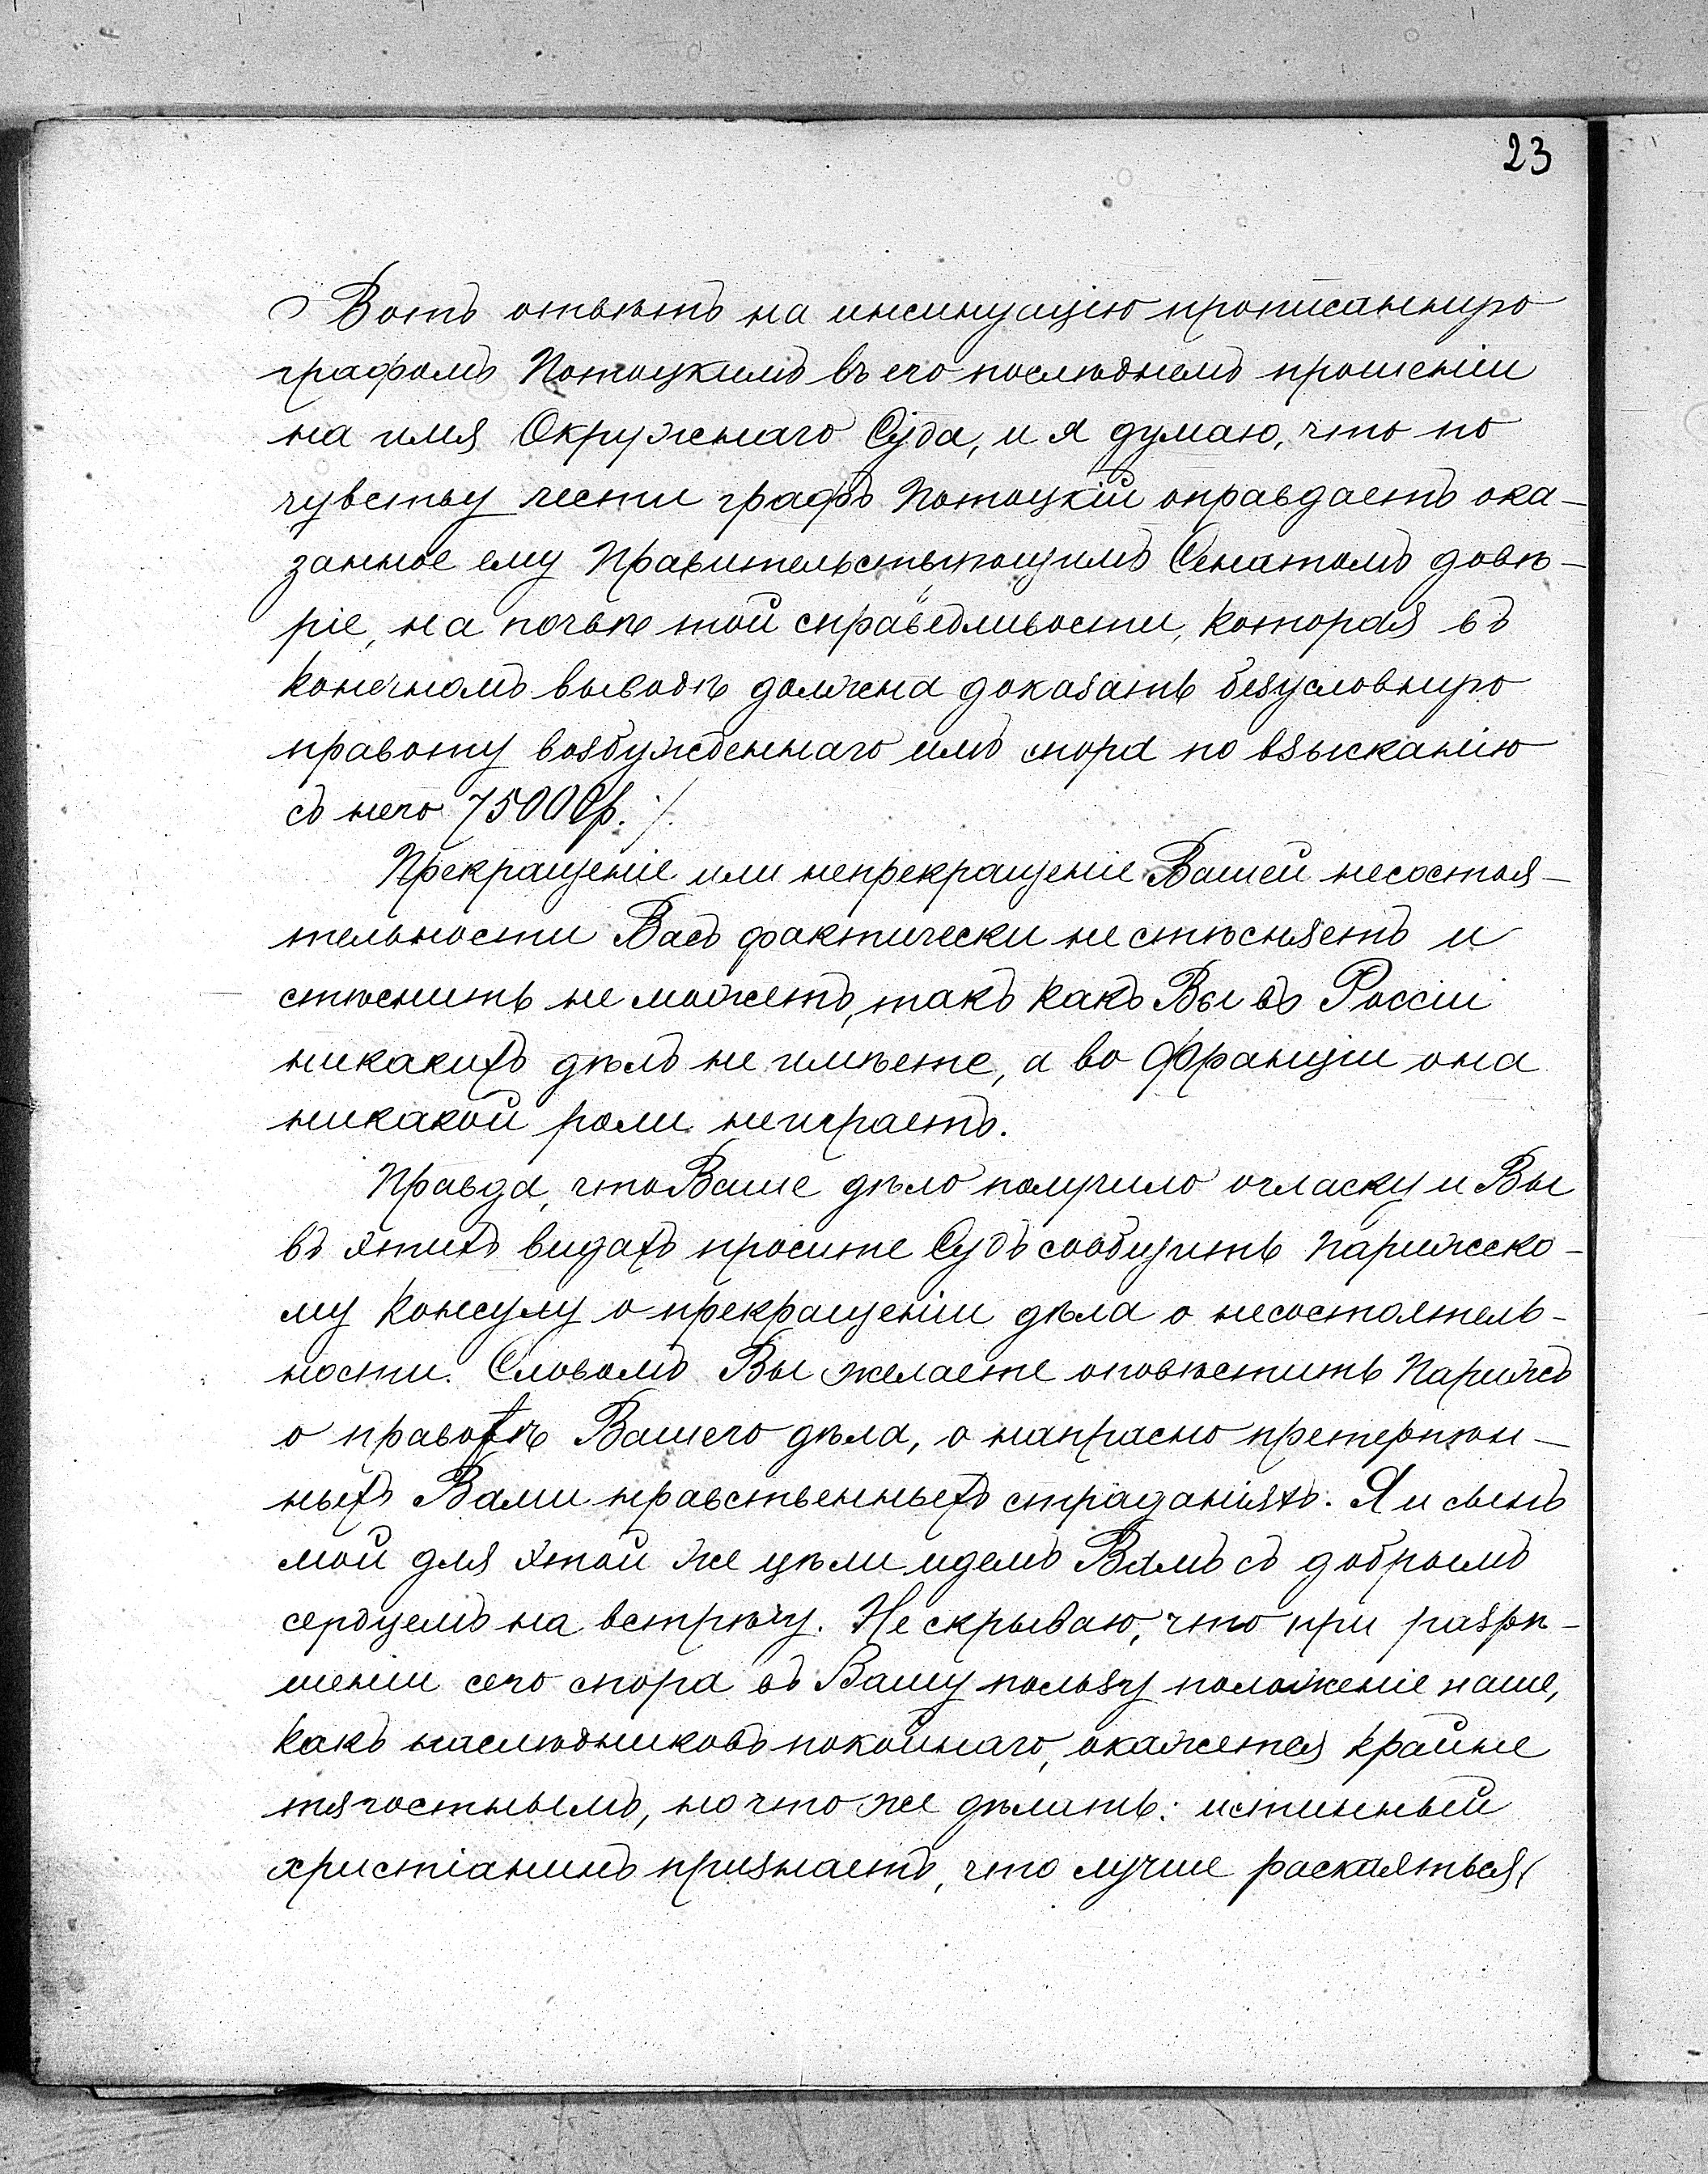 23
Вотъ отвѣтъ на инсинуацію прописанную
графомъ Потоцкимъ въ его послѣднемъ прошеніи
на имя Окружнаго Суда, и я думаю, что по
чувству чести графъ Потоцкій оправдаетъ ока-
занное ему Правительствующимъ Сенатомъ довѣ-
ріе, на почвѣ той справедливости, которая въ
конечномъ выводѣ должна доказать безусловную
правоту возбужденнаго имъ спора по взысканію
съ него 75000р. ./.
Прекращеніе или непрекращеніе Вашей несостоя-
тельности Васъ фактически не стѣсняетъ и
стѣснить не можетъ, такъ какъ Вы въ Россіи
никакихъ дѣлъ не имѣете, а во Франціи она
никакой роли не играетъ.
Правда, что Ваше дѣло получило огласку и Вы
въ этихъ видахъ просите Судъ сообщить Парижско-
му Консулу о прекращеніи дѣла о несостоятель-
ности. Словомъ Вы желаете оповѣстить Парижъ
о правотѣ Вашего дѣла, о напрасно претерпѣн-
ныхъ Вами нравственныхъ страданіяхъ. Я и сынъ
мой для этой же цѣли идемъ Вамъ съ добрымъ
сердцемъ на встрѣчу. Не скрываю, что при разрѣ-
шеніи сего спора въ Вашу пользу положеніе наше,
какъ наслѣдниковъ покойнаго, окажется крайне
тягостнымъ, но что же дѣлать: истинный
христіанинъ признаетъ, что лучше раскаяться